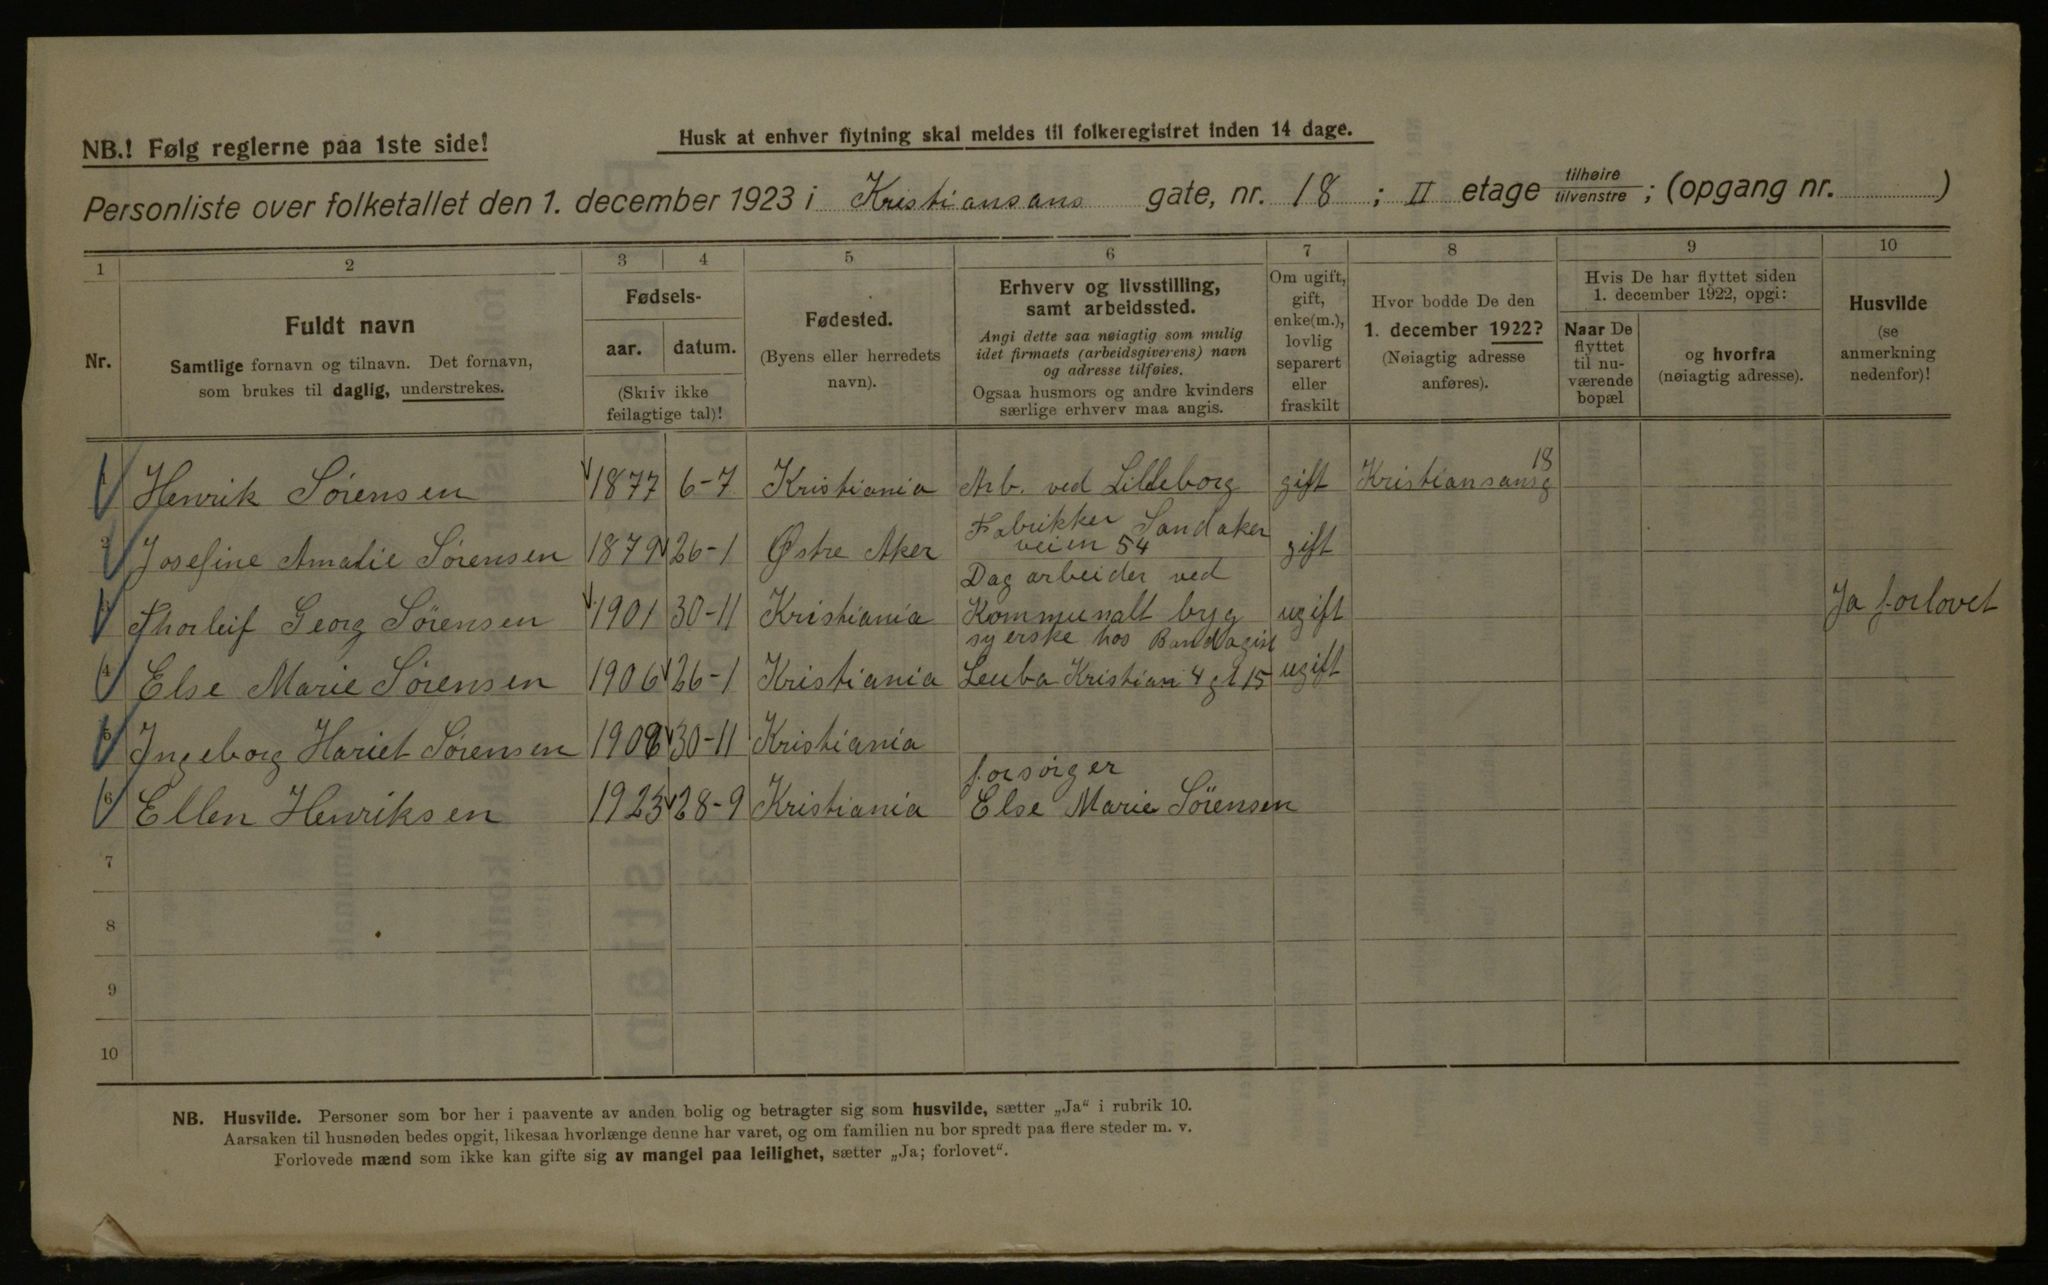 NB.! Følg reglerne paa 1ste side!
Husk at enhver flytning skal meldes til folkeregistret inden 14 dage.
Personliste over folketallet den 1. december 1923 i Kristiansans gate, nr. 18 ; II etage tilhøire tilvenstre ; (opgang nr. )
1 2 3 4 5 6 7 8 9 10
Nr.
Fuldt navn
Samtlige fornavn og tilnavn. Det fornavn,
som brukes til daglig, understrekes.
Fødsels-
aar. datum.
(Skriv ikke
feilagtige tal)!
Fødested.
(Byens eller herredets
navn).
Erhverv og livsstilling,
samt arbeidssted.
Angi dette saa nøiagtig som mulig
idet firmaets (arbeidsgiverens) navn
og adresse tilføies.
Ogsaa husmors og andre kvinders
særlige erhverv maa angis.
Om ugift,
gift,
enke(m.),
lovlig
separert
eller
fraskilt
Hvor bodde De den
1. december 1922?
(Nøiagtig adresse
anføres).
Hvis De har flyttet siden
1. december 1922, opgi:
Naar De
flyttet
til nu-
værende
bopæl
og hvorfra
(nøiagtig adresse).
Husvilde
(se
anmerkning
nedenfor)!
1 Henrik Sørensen 1877 6-7 Kristiania Arb. ved Lilleborg gift Kristiansansg 18
Fabrikker Sandaker
2 Josefine Amalie Sørensen 1879 26-1 Østre Aker veien 54 gift
Dagarbeider ved
3 Thorleif Georg Sörensen 1901 30-11 Kristiania Kommunalt byg ugift Ja forlovet
syerske hos Bandagist
4 Else Marie Sørensen 1906 26-1 Kristiania Leuba Kristian 4 gt 15 ugift
5 Ingeborg Hariet Sørensen 1908 30-11 Kristiania
forsørger
6 Ellen Henriksen 1923 28-9 Kristiania Else Marie Sörensen
7
8
9
10
NB. Husvilde. Personer som bor her i paavente av anden bolig og betragter sig som husvilde, sætter „Ja“ i rubrik 10.
Aarsaken til husnøden bedes opgit, likesaa hvorlænge denne har varet, og om familien nu bor spredt paa flere steder m. v.
Forlovede mænd som ikke kan gifte sig av mangel paa leilighet, sætter „Ja; forlovet“.